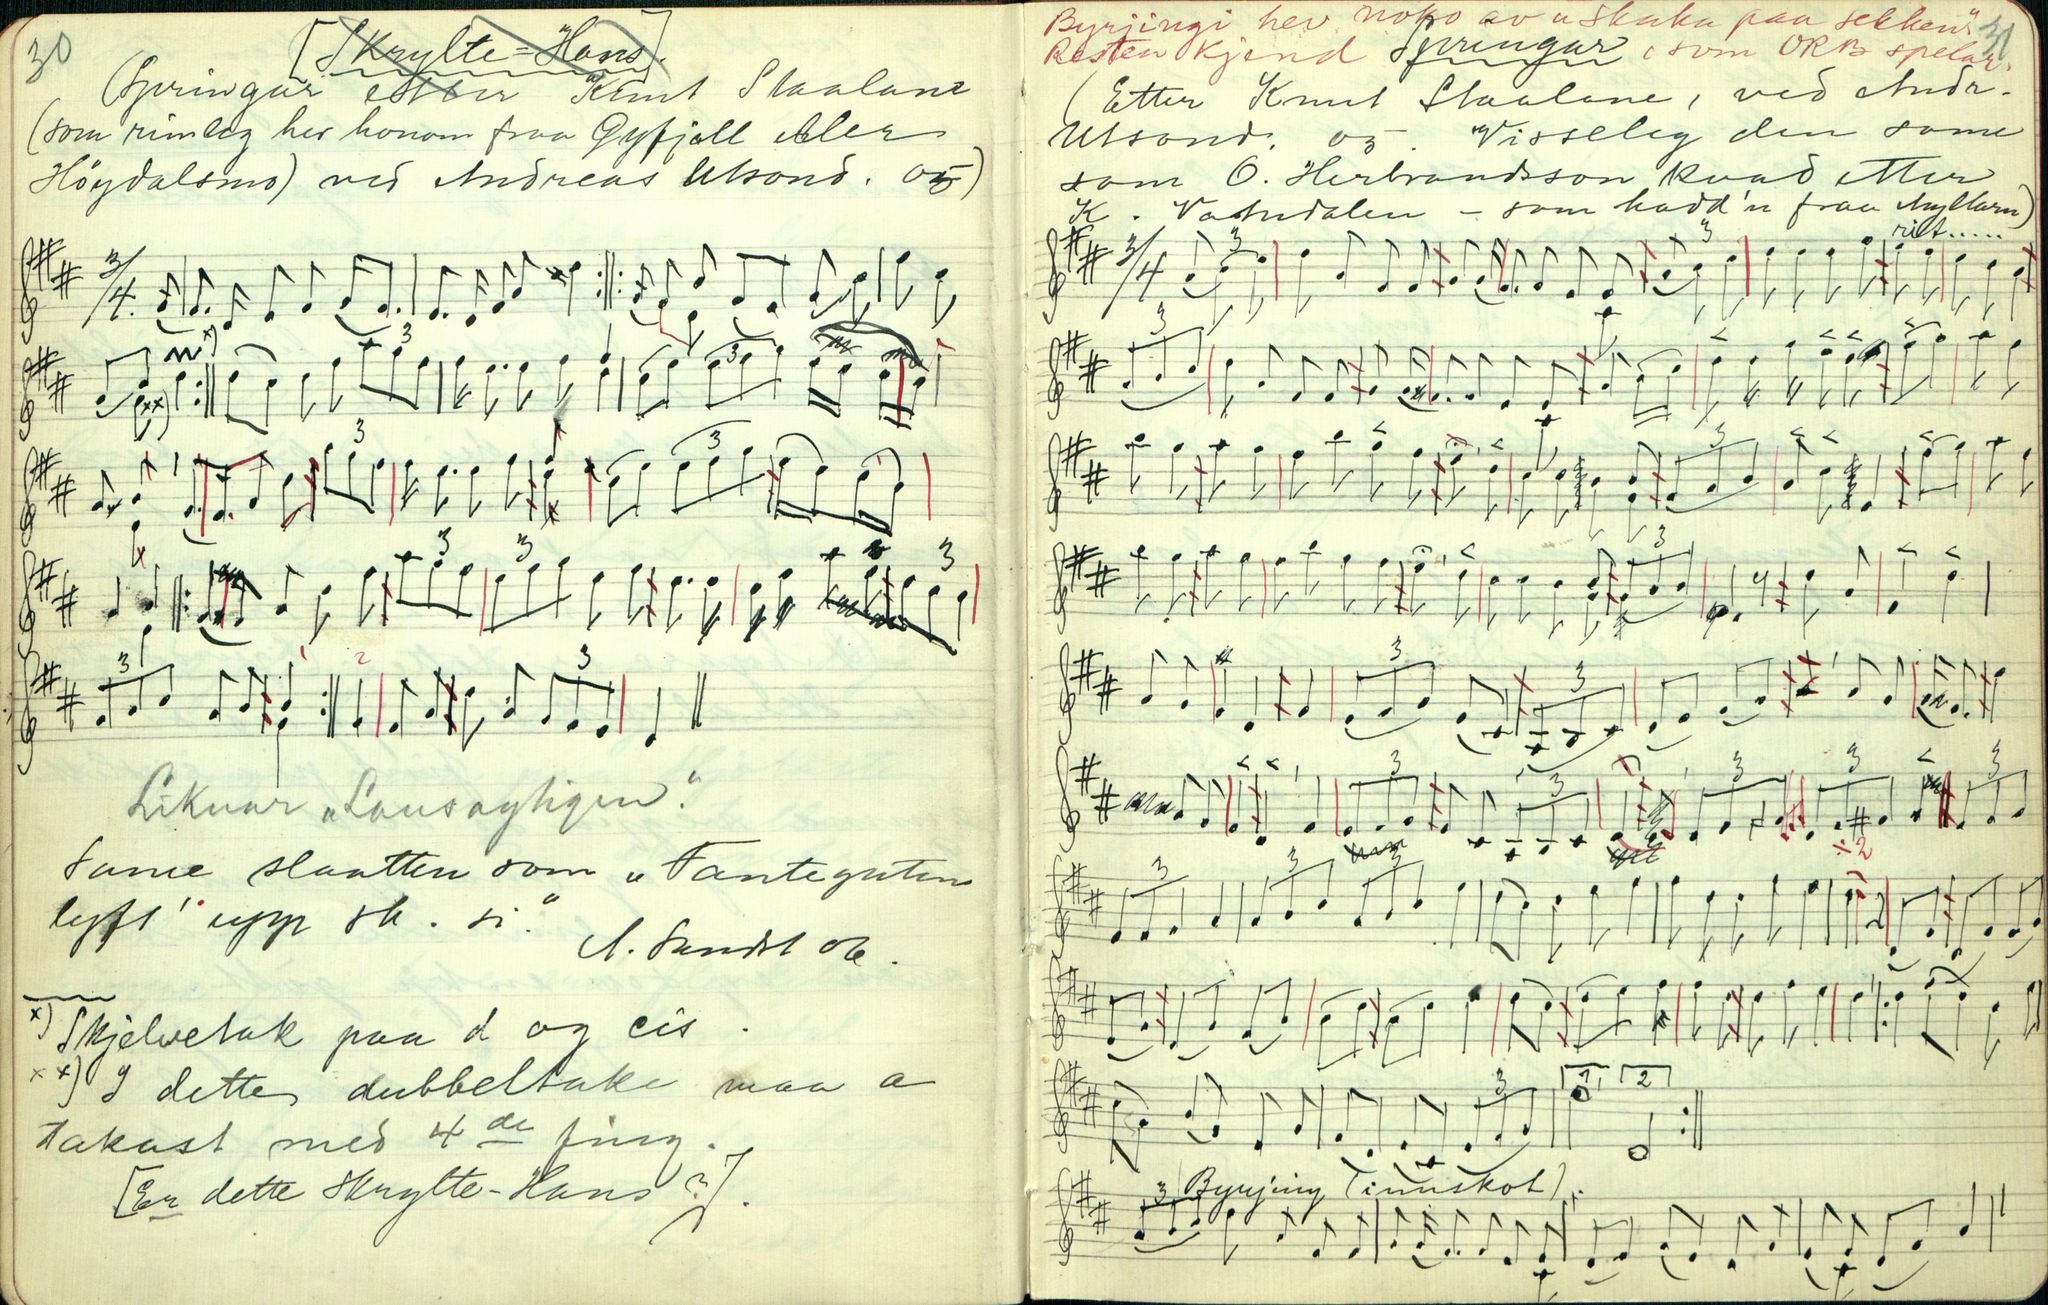 30
[Skrylte-Hans].
(Springar etter Knut Staalane
(som rimleg hev honom fraa Gyfjell eller
Höydalsmo) ved Andreas Utsond. 05)
3/4
3
x)
xx)
3
3
3
3
3
3
3
3
1
2
3
3
Liknar „Lausagtigen“.
Same slaatten som „Fanteguten
lyft' upp sk. si.“
A. Sundst 06.
x) Skjelvetak paa d og cis.
xx) I dette dubbeltake maa a
takast med 4de fing.
[Er dette Skrylte-Hans?].
31
Byrjingi hev noko av „Skaka paa sekken“
Resten kjend Springar, som ORB spelar.
(Etter Knut Staalane, ved Andr.
Utsond. 05. Visseleg den same
som O. Herbrandsson kvad etter
K. Vatndalen - som hadd'n fraa Myllarn)
rit.....
3/4
3
3
3
3
3
3
3
3
3
3
3
3
÷2
3
3
3
3
1
2
Byrjing (innskot).
3